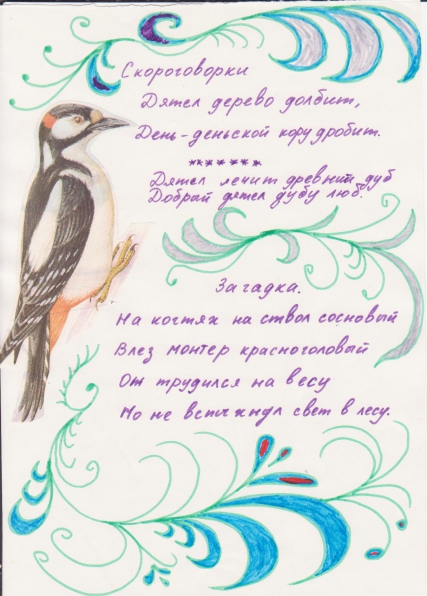 Скороговорки
Дятел дерево долбит,
День-деньской кору дробит.
Дятел лечит древний дуб
Добрый дятел дубу люб.
Загадка.
На когтях на ствол сосновый
Влез монтер красноголовый
Он трудился на весу
Но не вспыхнул свет в лесу.